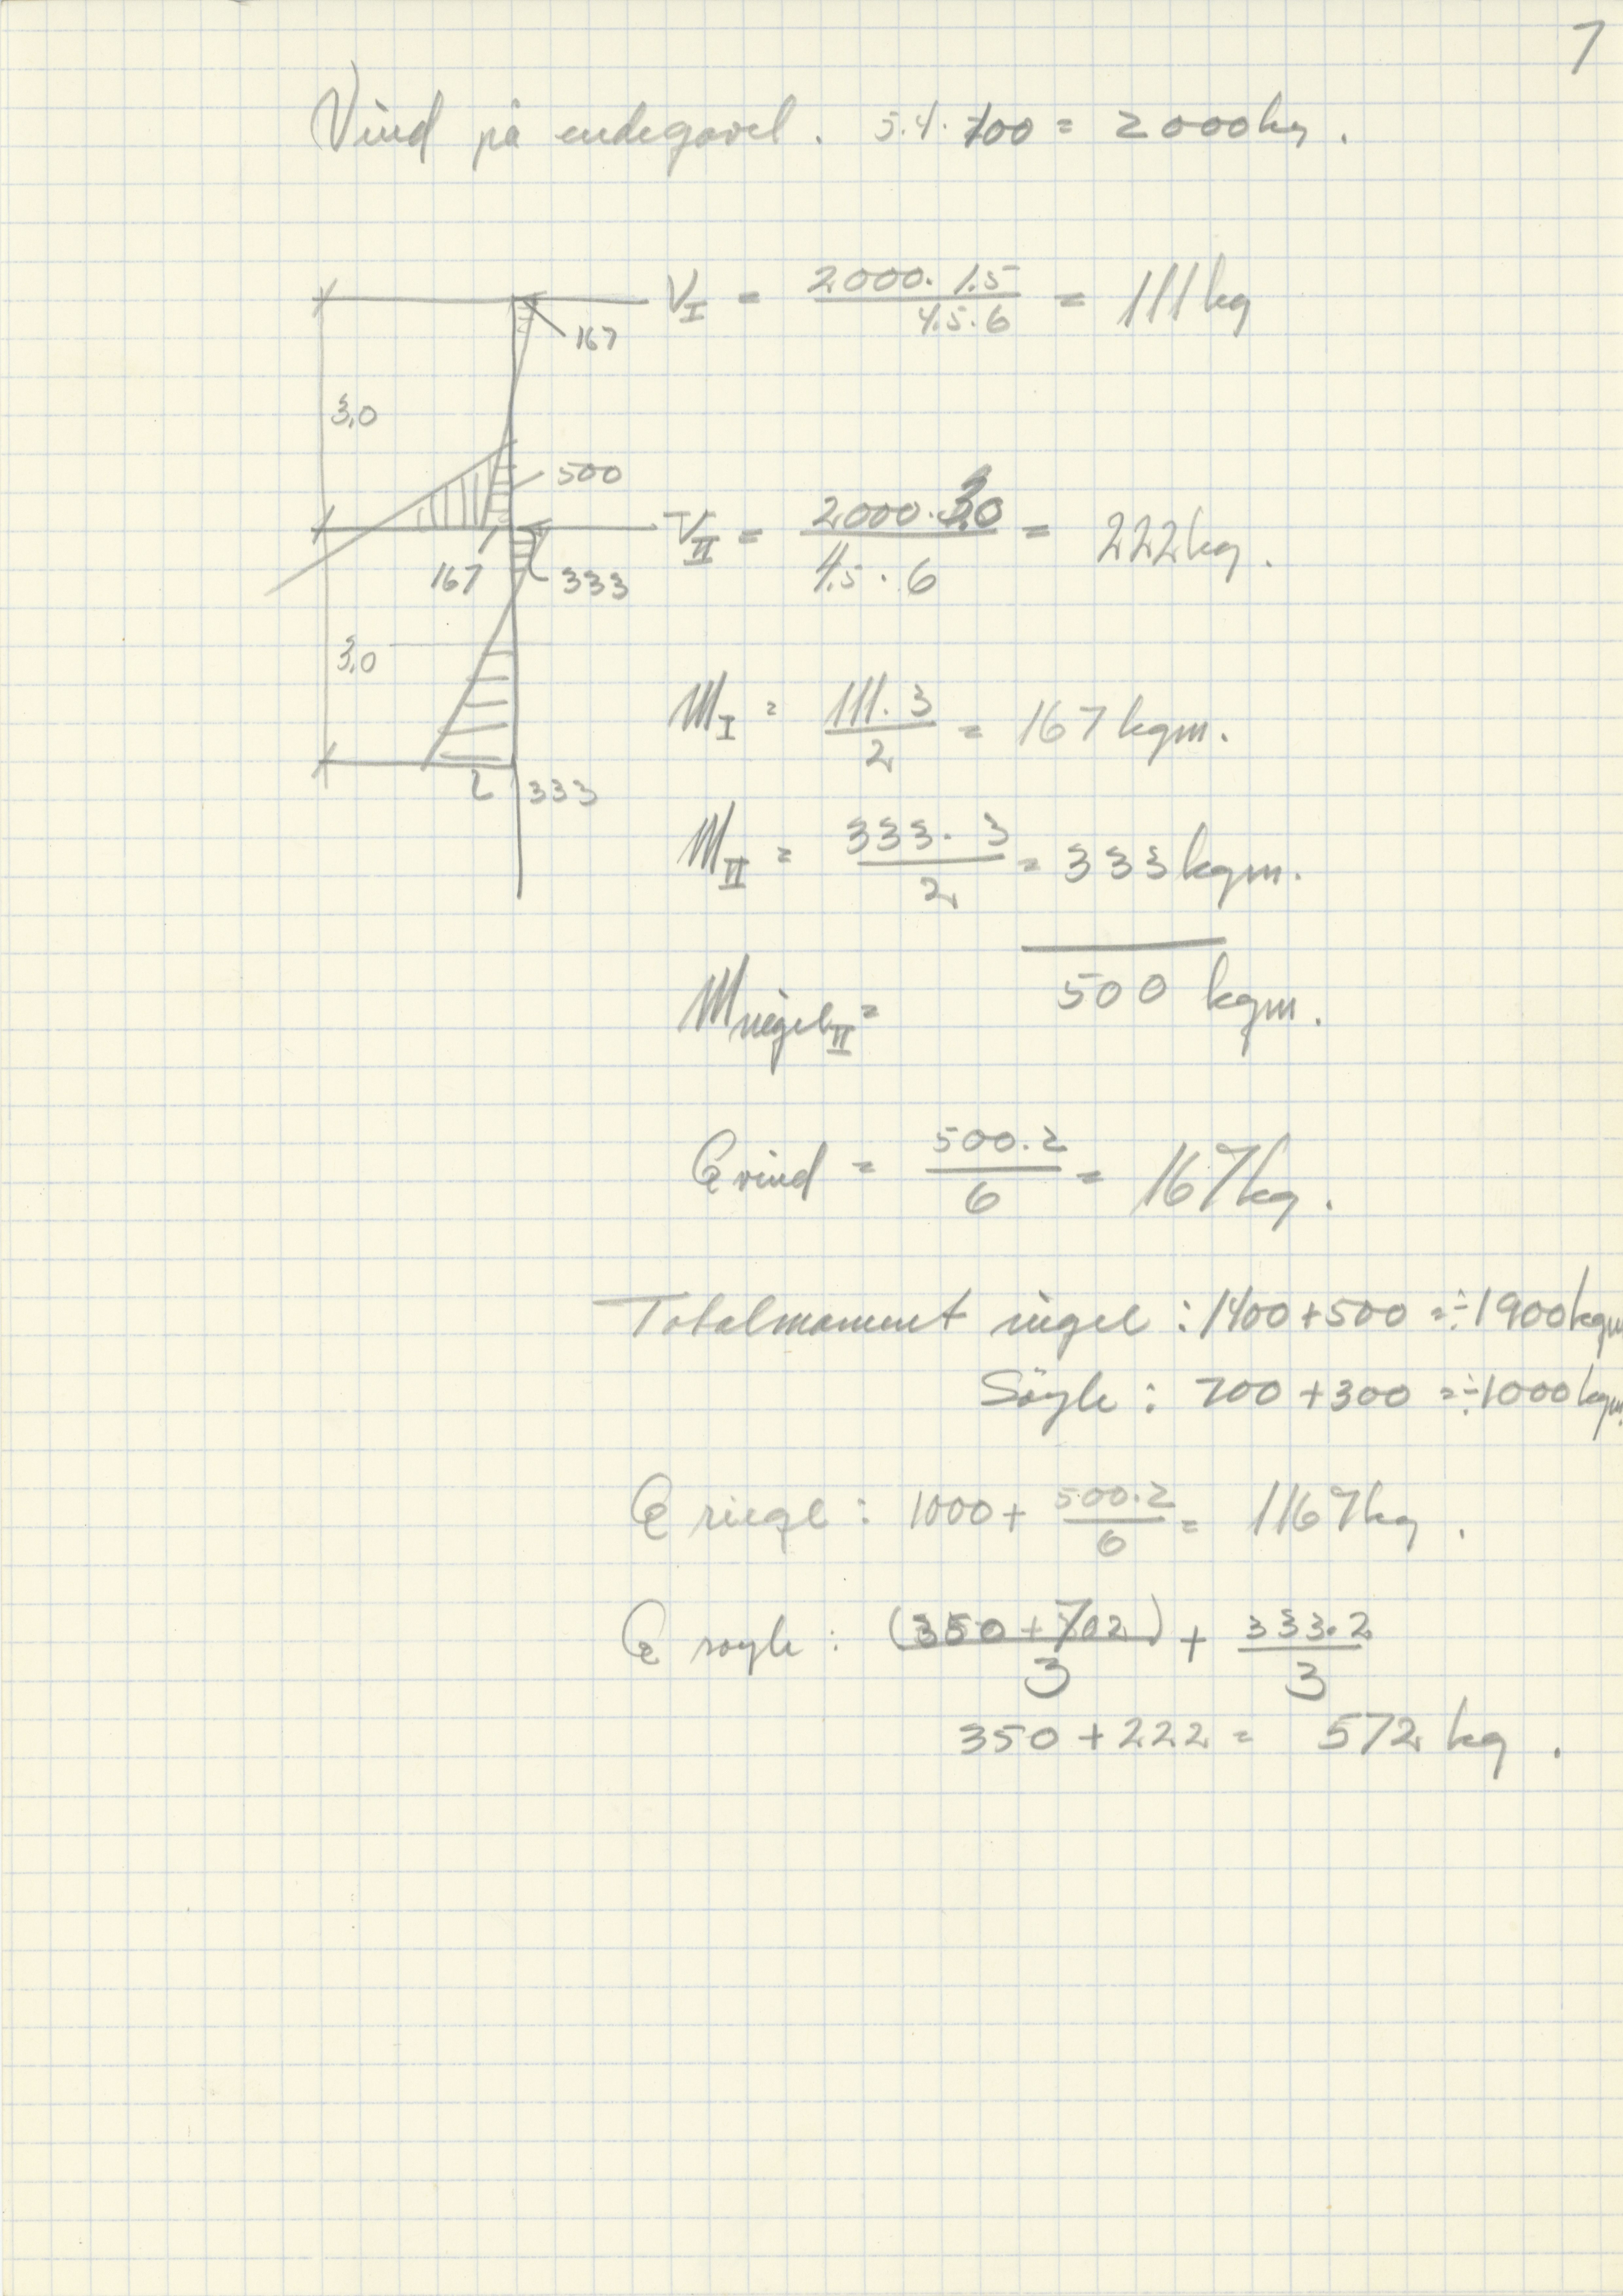 7
Vind på endegavel. 5.4.100 = 2000kg.
V_I = 2000. 1.5 / 4.5.6 = 111 kg
167
3,0
500
V_II = 2000.3,0 / 4,5 . 6 = 222 kg.
167 333
3,0
M_I = 111. 3 / 2 = 167 kgm.
333
M_II = 333. 3 / 2 = 333 kgm.
M riegel II = 500 kgm.
Q vind = 500.2 / 6 = 167 kg.
Totalmoment riegel : 1400+500 = ÷1900kgm
Söyle : 700 + 300 = ÷1000 kgm.
Q riegl : 1000 + 500.2 / 6 = 1167 kg.
Q soyle : (350 + 702) / 3 + 333.2 / 3
350 + 222 = 572 kg.